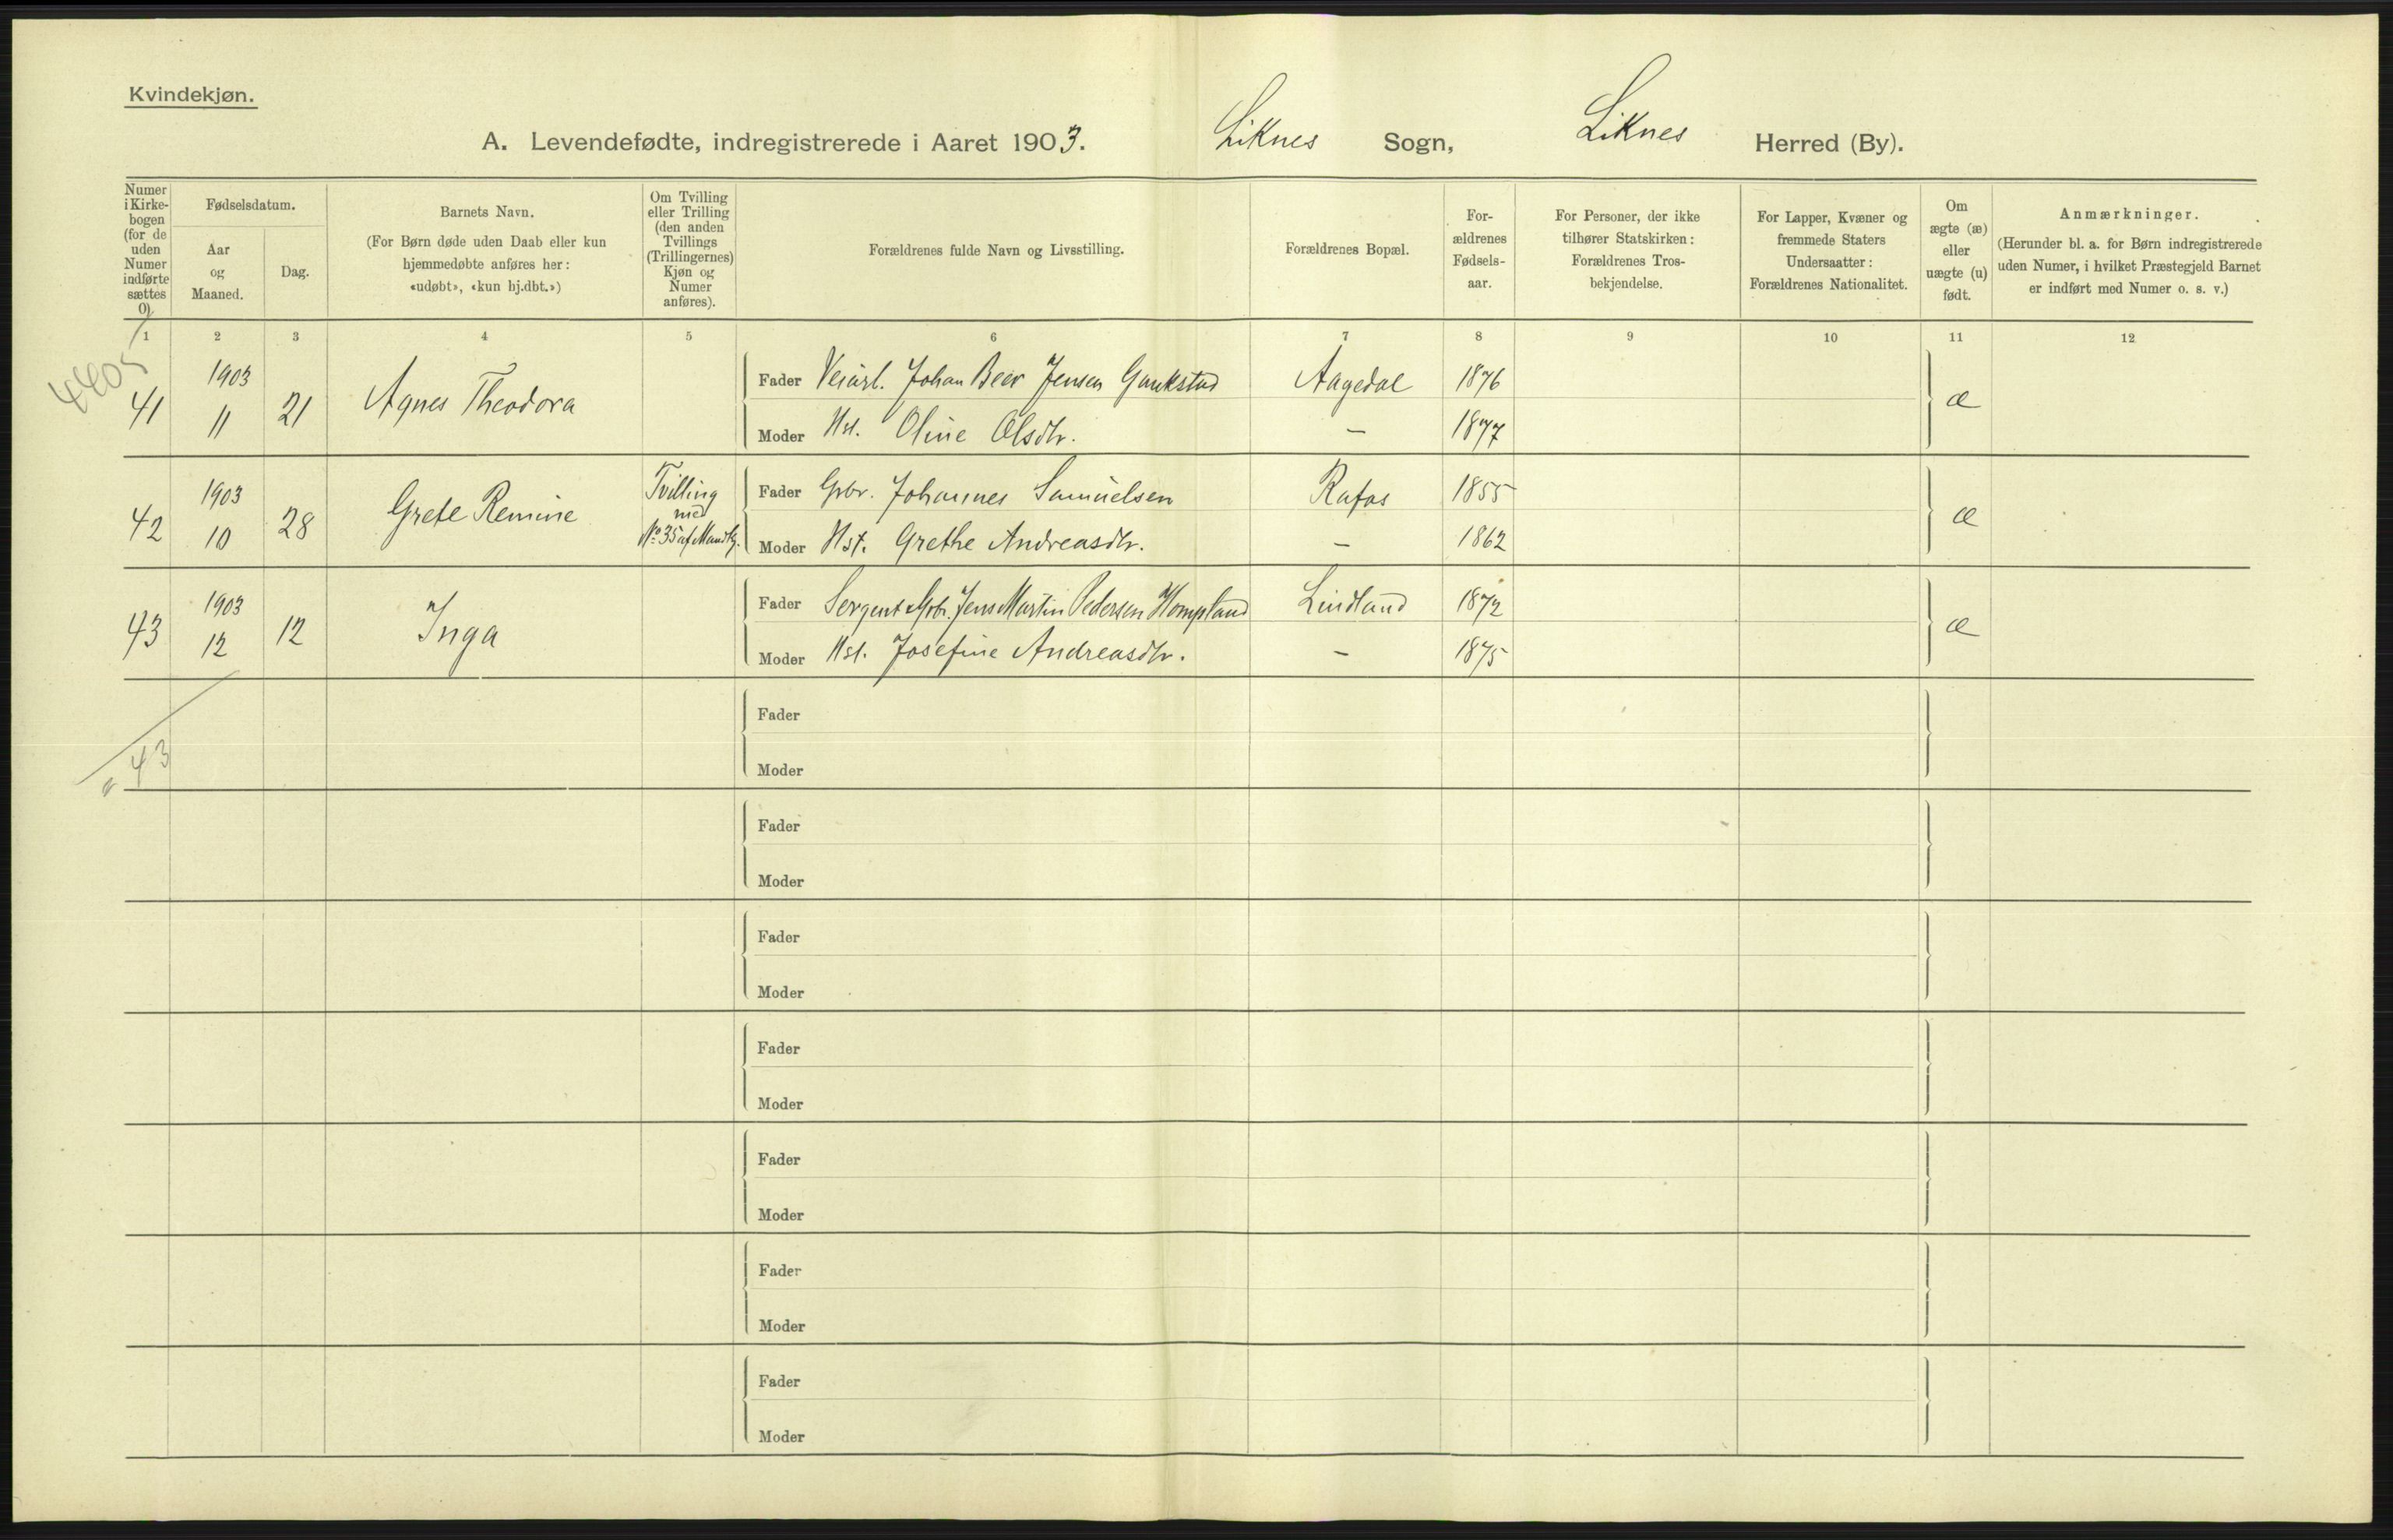 Kvindekjøn.
A. Levendefødte, indregistrerede i Aaret 1903. Liknes Sogn, Liknes Herred (By).
Numer i Kirke-bogen (for de uden Numer indførte sættes 0).
Fødselsdatum.
Aar og Maaned.
Dag.
Barnets Navn.
(For Børn døde uden Daab eller kun hjemmedøbte anføres her: «udøbt», «kun hj.dbt.»)
Om Tvilling eller Trilling (den anden Tvillings (Trillingernes) Kjøn og Numer anføres).
Forældrenes fulde Navn og Livsstilling.
Forældrenes Bopæl.
For-ældrenes Fødsels-aar.
For Personer, der ikke tilhører Statskirken: Forældrenes Tros-bekjendelse.
For Lapper, Kvæner og fremmede Staters Undersaatter: Forældrenes Nationalitet.
Om ægte (æ) eller uægte (u) født.
Anmærkninger.
(Herunder bl. a. for Børn indregistrerede uden Numer, i hvilket Præstegjeld Barnet er indført med Numer o. s. v.)
1 2 3 4 5 6 7 8 9 10 11 12
4405
41 1903 11 21 Agnes Theodora
Fader Veiarb. Johan Beer Jensen Gaukstad Aagedal 1876 æ
Moder Hst. Oline Olsdtr. — 1877
42 1903 10 28 Grete Remine Tvilling med No 35 af Mandkj.
Fader Gbr. Johannes Samuelsen Rafos 1855 æ
Moder Hst. Grethe Andreasdtr. — 1862
43 1903 12 12 Inga
Fader Sergent & Gbr. Jens Martin Pedersen Hompland Lindland 1872 æ
Moder Hst. Josefine Andreasdtr. — 1875
43
Fader
Moder
Fader
Moder
Fader
Moder
Fader
Moder
Fader
Moder
Fader
Moder
Fader
Moder